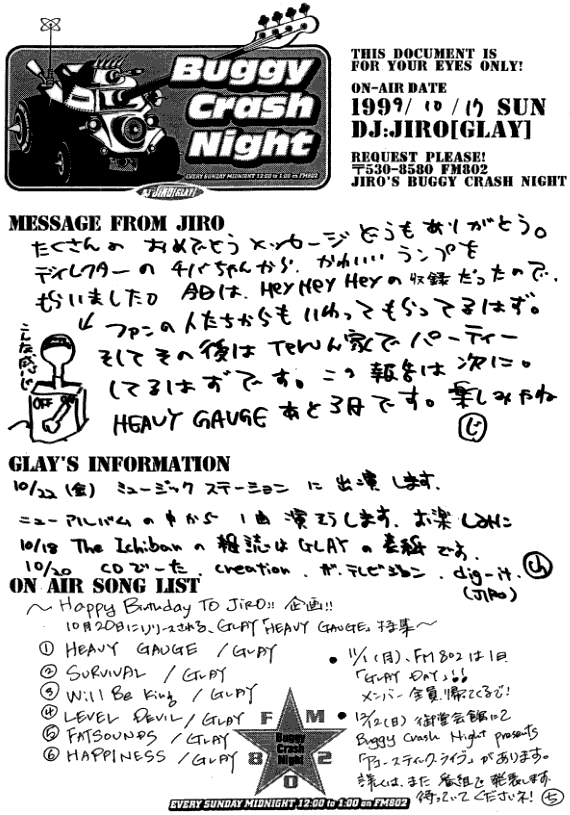 Buggy
Crash
Night
EVERY SUNDAY MIDNIGHT 12:00 to 1:00 on FM802
DJ JIRO[GLAY]
THIS DOCUMENT IS
FOR YOUR EYES ONLY!
ON-AIR DATE
1999/10/17 SUN
DJ:JIRO[GLAY]
REQUEST PLEASE!
〒530-8580 FM802
JIRO'S BUGGY CRASH NIGHT
MESSAGE FROM JIRO
たくさんの おめでとう メッセージ どうも ありがとう。
ディレクターの チバちゃんから、かわいい ランプを
もらいました。 今日は、HEY HEY HEYの 収録 だったので、
ファンの人たちからも いわって もらってるはず。
そして その後は TERUん家で パーティー
してるはずです。この 報告は 次に。
HEAVY GAUGE あと3日です。楽しみだね
じ
こんな感じ
OFF ON
GLAY'S INFORMATION
10/22 (金) ミュージック ステーション に 出演 します。
ニューアルバムの中から 1曲 演奏します。お楽しみに
10/18 The Ichibanの 雑誌は GLAYの 表紙です。
10/20 CDでーた、creation、ザ・テレビジョン、dig-it.
(JIRO)
ON AIR SONG LIST
〜 Happy Birthday TO JIRO!! 企画!!
10月20日にリリースされる、GLAY「HEAVY GAUGE」特集〜
① HEAVY GAUGE / GLAY
② SURVIVAL / GLAY
③ Will Be King / GLAY
④ LEVEL DEVIL / GLAY
⑤ FATSOUNDS / GLAY
⑥ HAPPINESS / GLAY
• 11/1 (月)、FM802は1日
「GLAY DAY」!!
メンバー全員帰ってくるで!
• 12/12(日) 御堂会館にて
Buggy Crash Night presents
「アコースティック・ライヴ」があります。
詳しくは、また 番組で 発表します
待っていて くださいネ! ち
FM
802
Buggy
Crash
Night
EVERY SUNDAY MIDNIGHT 12:00 to 1:00 on FM802